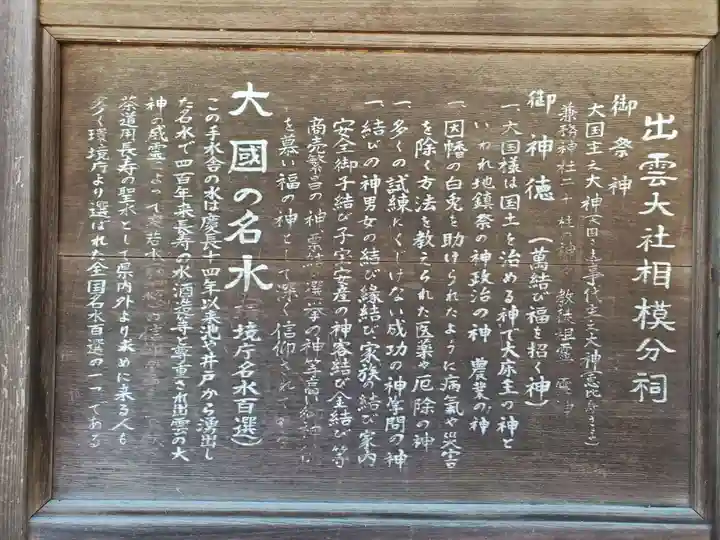 出雲大社相模分祠
御祭神
大国主之大神 事代主之大神
兼務神社二十 社の神々 教徒祖霊
御神徳 (萬結び福を招く神)
一、大国様は国土を治める神で大床主の神と
いわれ地鎮祭の神政治の神 農業の神
一、因幡の白兎を助けられたように病氣や災害
を除く方法を教えられた医薬や厄除の神
一、多くの試練にくじけない成功の神学問の神
一、結びの神男女の結び縁結び家族の結び家内
安全御手結び子宝安産の神客結び金結び等
商売繁昌の神 選挙の神等
を慕い福の神として深く信仰されて
大國の名水 (環境庁名水百選)
この手水舎の水は慶長十四年以来池や井戸から湧出し
た名水で四百年来長寿の水酒造等と尊重され出雲の大
神の威霊によって
茶道用長寿の聖水として県内外より求めに来る人も
多く環境庁より選ばれた全国名水百選の一つである